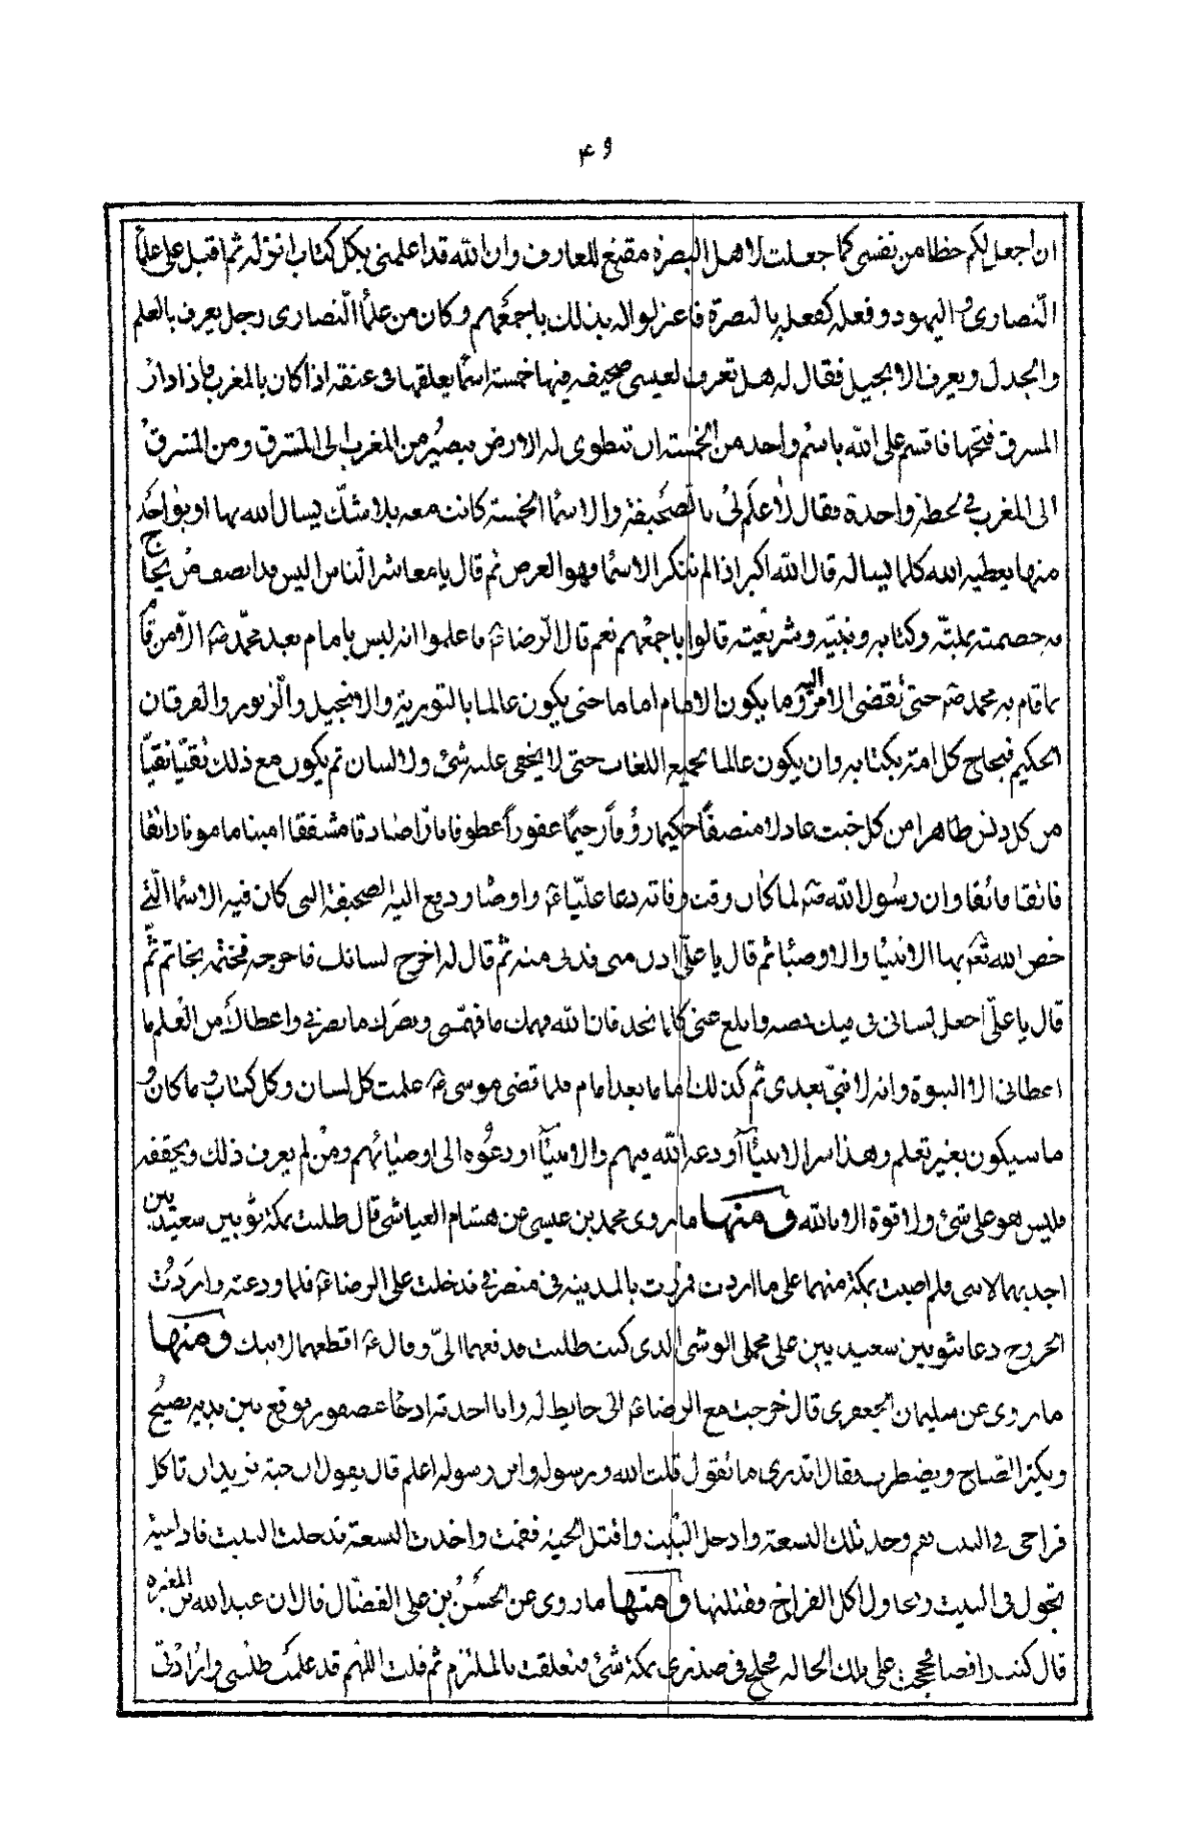 ۴۹
ان اجعل لكم حظا من نفسى كما جعلت لاهل البصرة مقنع للعارف وان الله قد اعلمنى بكل كتاب انزله ثم اقبل على علما
النصارى و اليهود وفعله كفعله بالبصرة فاعترلوا له بذلك باجمعهم وكان من علما النصارى رجل يعرف بالعلم
والجدل ويعرف الانجيل فقال له هل تعرف لعيسى صحيفه فيها خمسة اسما يعلقها فى عنقه اذا كان بالمغرب فاذا دار
المسرق فتحها فاقسم على الله باسم واحد من الخمسة ان تنطوى له الارض فيصير من المغرب الى المشرق ومن المشرق
الى المغرب فى لحظه واحدة فقال لا علم لى بالصحيفة والاسما الخمسة كانت معه بلا شك يسال الله بها او بواحد
منها يعطيه الله كلما يساله قال الله اكبر اذا لم تنكر الاسما فهو العرض ثم قال يا معاشر الناس اليس قد انصف من يحاج
به خصمته بملته وكتابه ونبيه وشريعته قالوا باجمعهم نعم قال الرضا ع فاعلموا انه ليس بامام بعد محمد ص الا من قام
بما قام به محمد ص حتى تقضى الامر اليه وما يكون الامام اماما حتى يكون عالما بالتورية والانجيل والزبور والفرقان
الحكيم فيحاج كل امة بكتابه وان يكون عالما بجميع اللغات حتى لا يخفى عليه شئ ولا لسان ثم يكون مع ذلك تقيا نقيا
من كل دنس طاهرا من كل خبث عادلا منصفا حكيما رؤفا رحيما غفورا عطوفا بارا صادقا مشفقا امينا مامونا راتقا
فاتقا وان رسول الله ص لما كان وقت وفاته دعا عليا ع واوصا ودفع اليه الصحيفة التى كان فيه الاسما التى
خص الله تع بها الانبيا والاوصيا ثم قال يا على ادن منى فدنى منه ثم قال له اخرج لسانك فاخرجه فختمه بخاتم ثم
قال يا على اجعل لسانى فى فيك فمصه وابلع عنى كلما تجد فان الله فهمك ما فهمنى وبصرك ما بصرنى واعطاك من العلم ما
اعطانى الا النبوة وانه لا نبى بعدى ثم كذلك اماما بعد امام فلما قضى موسى ع علمت كل لسان وكل كتاب وما كان و
ما سيكون بغير تعلم وهذا سر الانبيآ اودعه الله فيهم والانبيآ اودعوه الى اوصيائهم ومن لم يعرف ذلك ويحققه
فليس هو على شئ ولا قوة الا بالله ومنها ما روى محمد بن عيسى عن هشام العياشى قال طلبت بمكة ثوبين سعيديين
اجد بهما لابنى فلم اصبت بمكة منهما على ما اردت فمررت بالمدينه فى منصرفى فدخلت على الرضا ع فلما ودعته واردت
الخروج دعا بثوبين سعيديين على محملى الوشى الذى كنت طلبت فدفعهما الىّ وقال ع اقطعهما لابنك ومنها
ما روى عن سليمان الجعفرى قال خرجت مع الرضا ع الى حايط له وانا احدثه اذ جا عصفور فوقع بين يديه يصيح
ويكثر الصياح ويضطرب فقال اتدرى ما تقول قلت الله ورسوله وابن رسوله اعلم قال يقول ان حية تريد ان تاكل
فراخى فى البيت فقم وخذ تلك النسعة وادخل البيت واقتل الحية فقمت واخذت النسعة فدخلت البيت فاذا حية
تجول فى البيت وتحاول اكل الفراخ فقتلتها ومنها ما روى عن الحسن بن على الفضال قال ان عبد الله بن المغيره
قال كنت واقفا فحججت على تلك الحاله فخلج فى صدرى بمكة شئ فتعلقت بالملتزم ثم قلت اللهم قد علمت طلبتى وارادتى